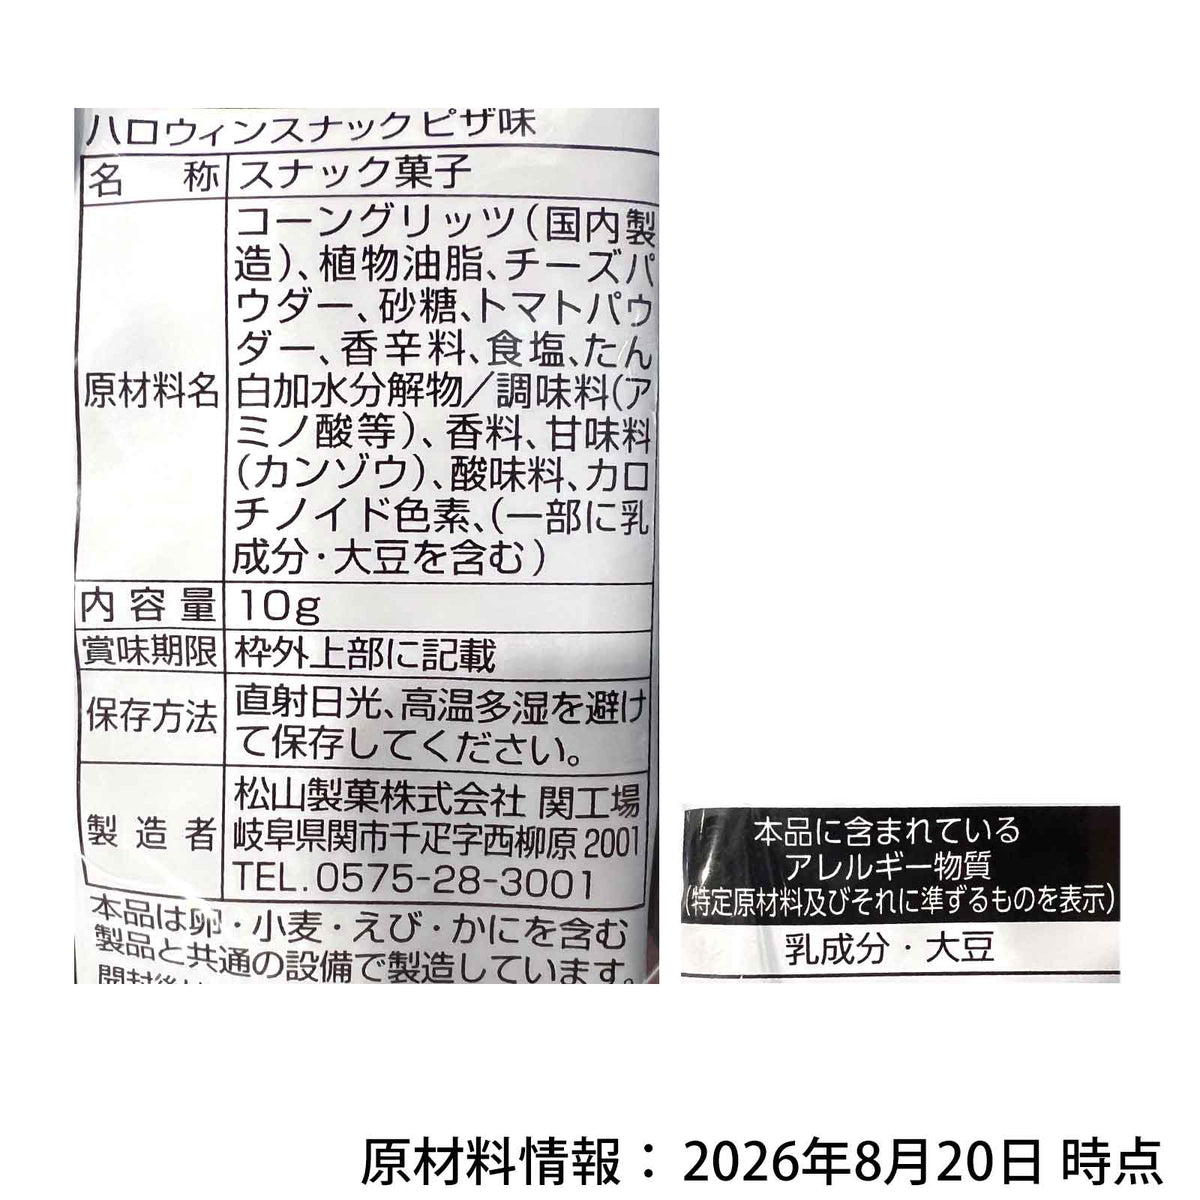 ハロウィンスナックピザ味
名称 スナック菓子
原材料名 コーングリッツ(国内製
造)、植物油脂、チーズパ
ウダー、砂糖、トマトパウ
ダー、香辛料、食塩、たん
白加水分解物/調味料(ア
ミノ酸等)、香料、甘味料
(カンゾウ)、酸味料、カロ
チノイド色素、(一部に乳
成分・大豆を含む)
内容量 10g
賞味期限 枠外上部に記載
保存方法 直射日光、高温多湿を避け
て保存してください。
製造者 松山製菓株式会社 関工場
岐阜県関市千疋字西柳原2001
TEL.0575-28-3001
本品は卵・小麦・えび・かにを含む
製品と共通の設備で製造しています。
本品に含まれている
アレルギー物質
(特定原材料及びそれに準ずるものを表示)
乳成分・大豆
原材料情報：2026年8月20日 時点